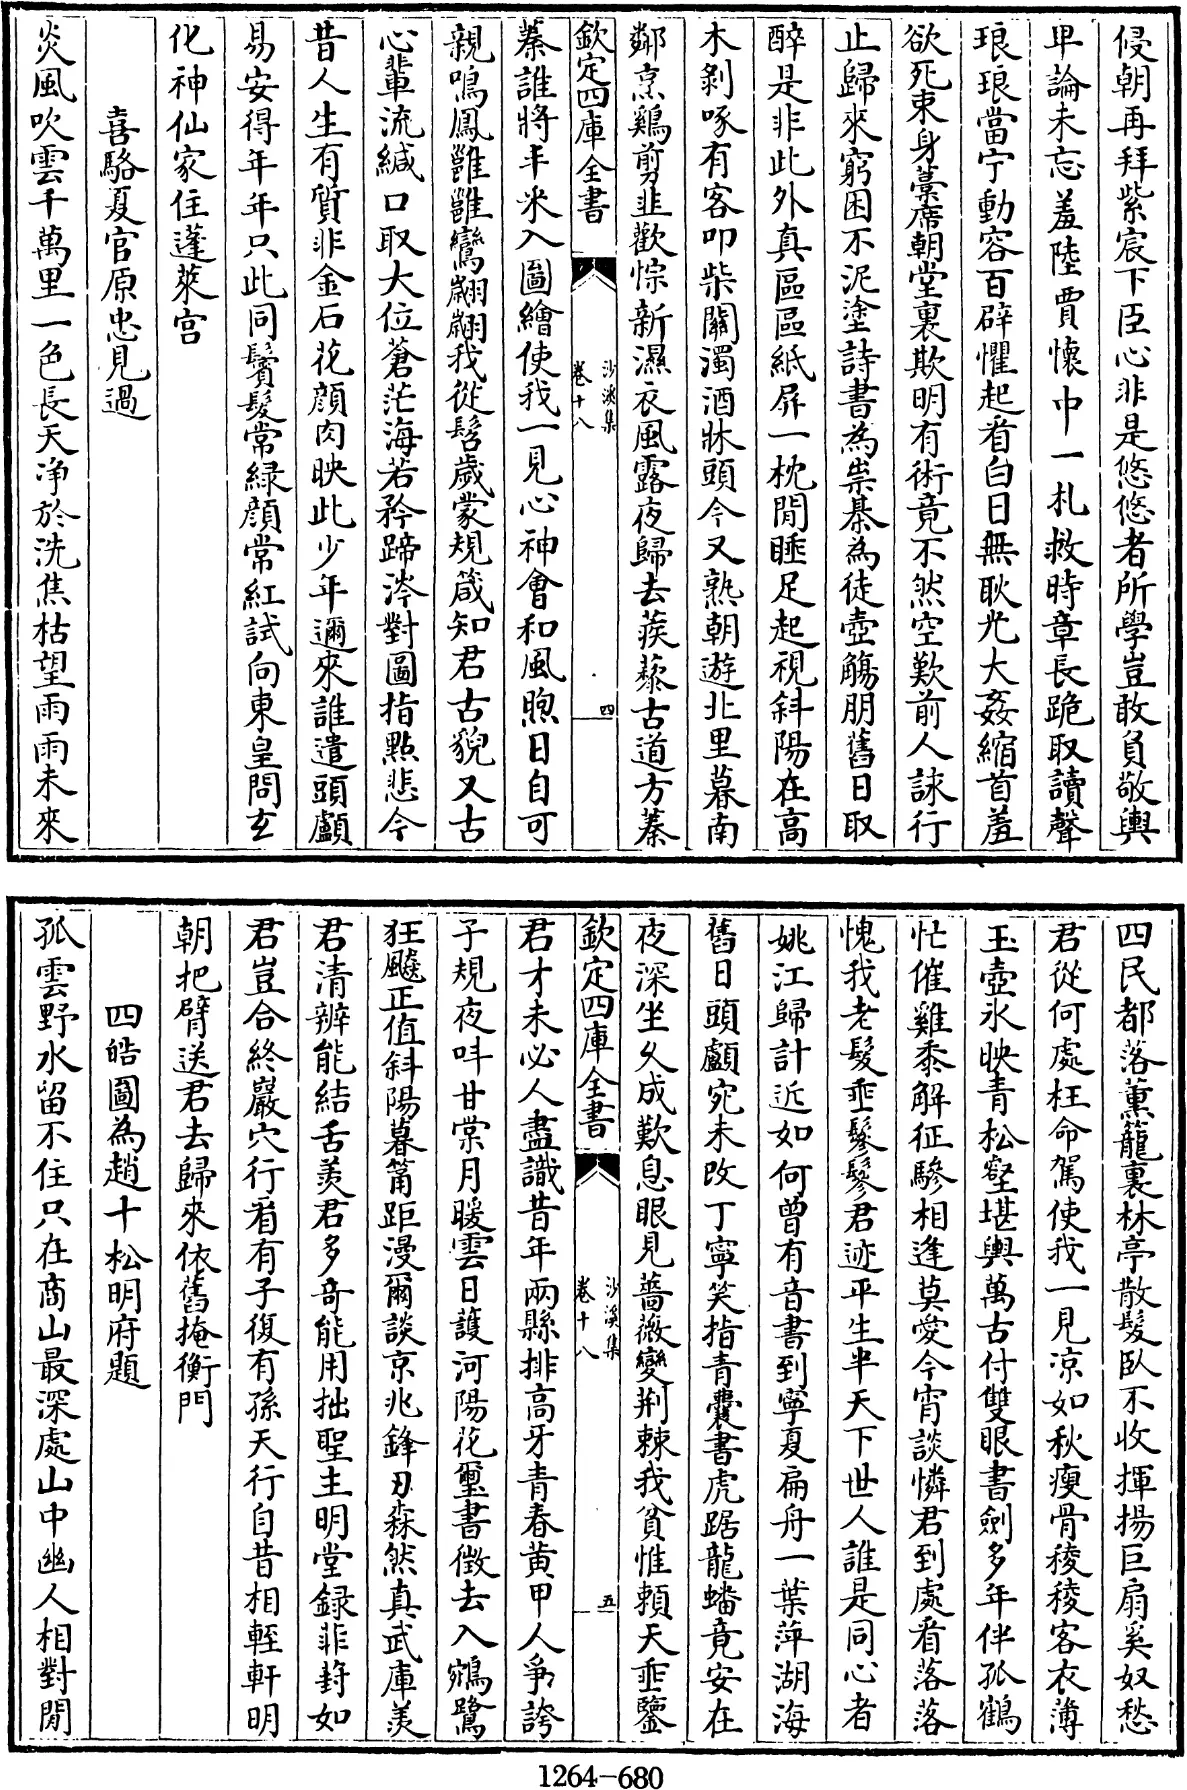 侵朝再拜紫宸下臣心非是悠悠者所學豈敢負敬輿
卑論未忘羞陸賈懷中一札救時章長跪取讀聲
琅琅當宁動容百辟懼起看白日無耿光大姦縮首羞
欲死束身藁席朝堂裏欺明有術竟不然空歎前人詠行
止歸來窮困不泥塗詩書為祟棊為徒壺觴朋舊日取
醉是非此外真區區紙屏一枕閒睡足起視斜陽在高
木剝啄有客叩柴關濁酒牀頭今又熟朝遊北里暮南
鄰烹鷄剪韭歡悰新濕衣風露夜歸去蒺藜古道方蓁
欽定四庫全書
沙溪集
卷十八
四
蓁誰將半米入圖繪使我一見心神會和風煦日自可
親鳴鳳雝雝鸞翽翽我從髫歲蒙規箴知君古貌又古
心輩流緘口取大位蒼茫海若矜蹄涔對圖指點悲今
昔人生有質非金石花顔肉映此少年邇來誰遣頭顱
易安得年年只此同鬢髮常緑顔常紅試向東皇問玄
化神仙家住蓬萊宫
喜駱夏官原忠見過
炎風吹雲千萬里一色長天净於洗焦枯望雨雨未來
四民都落薰籠裏林亭散髮卧不收揮揚巨扇奚奴愁
君從何處枉命駕使我一見凉如秋瘦骨稜稜客衣薄
玉壺氷映青松壑堪輿萬古付雙眼書劍多年伴孤鶴
忙催雞黍解征驂相逢莫愛今宵談憐君到處看落落
愧我老髮垂鬖鬖君迹平生半天下世人誰是同心者
姚江歸計近如何曾有音書到寧夏扁舟一葉萍湖海
舊日頭顱宛未改丁寧笑指青囊書虎踞龍蟠竟安在
夜深坐久成歎息眼見薔薇變荆棘我貧惟賴天垂鑒
欽定四庫全書
沙溪集
卷十八
五
君才未必人盡識昔年兩縣排高牙青春黄甲人爭誇
子規夜呌甘棠月暖雲日護河陽花璽書徴去入鵷鷺
狂飈正值斜陽暮筩距漫爾談京兆鋒刃森然真武庫羨
君清辨能結舌羨君多奇能用拙聖主明堂録菲葑如
君豈合終巖穴行看有子復有孫天行自昔相輊軒明
朝把臂送君去歸來依舊掩衡門
四皓圖為趙十松明府題
孤雲野水留不住只在商山最深處山中幽人相對閒
1264-680